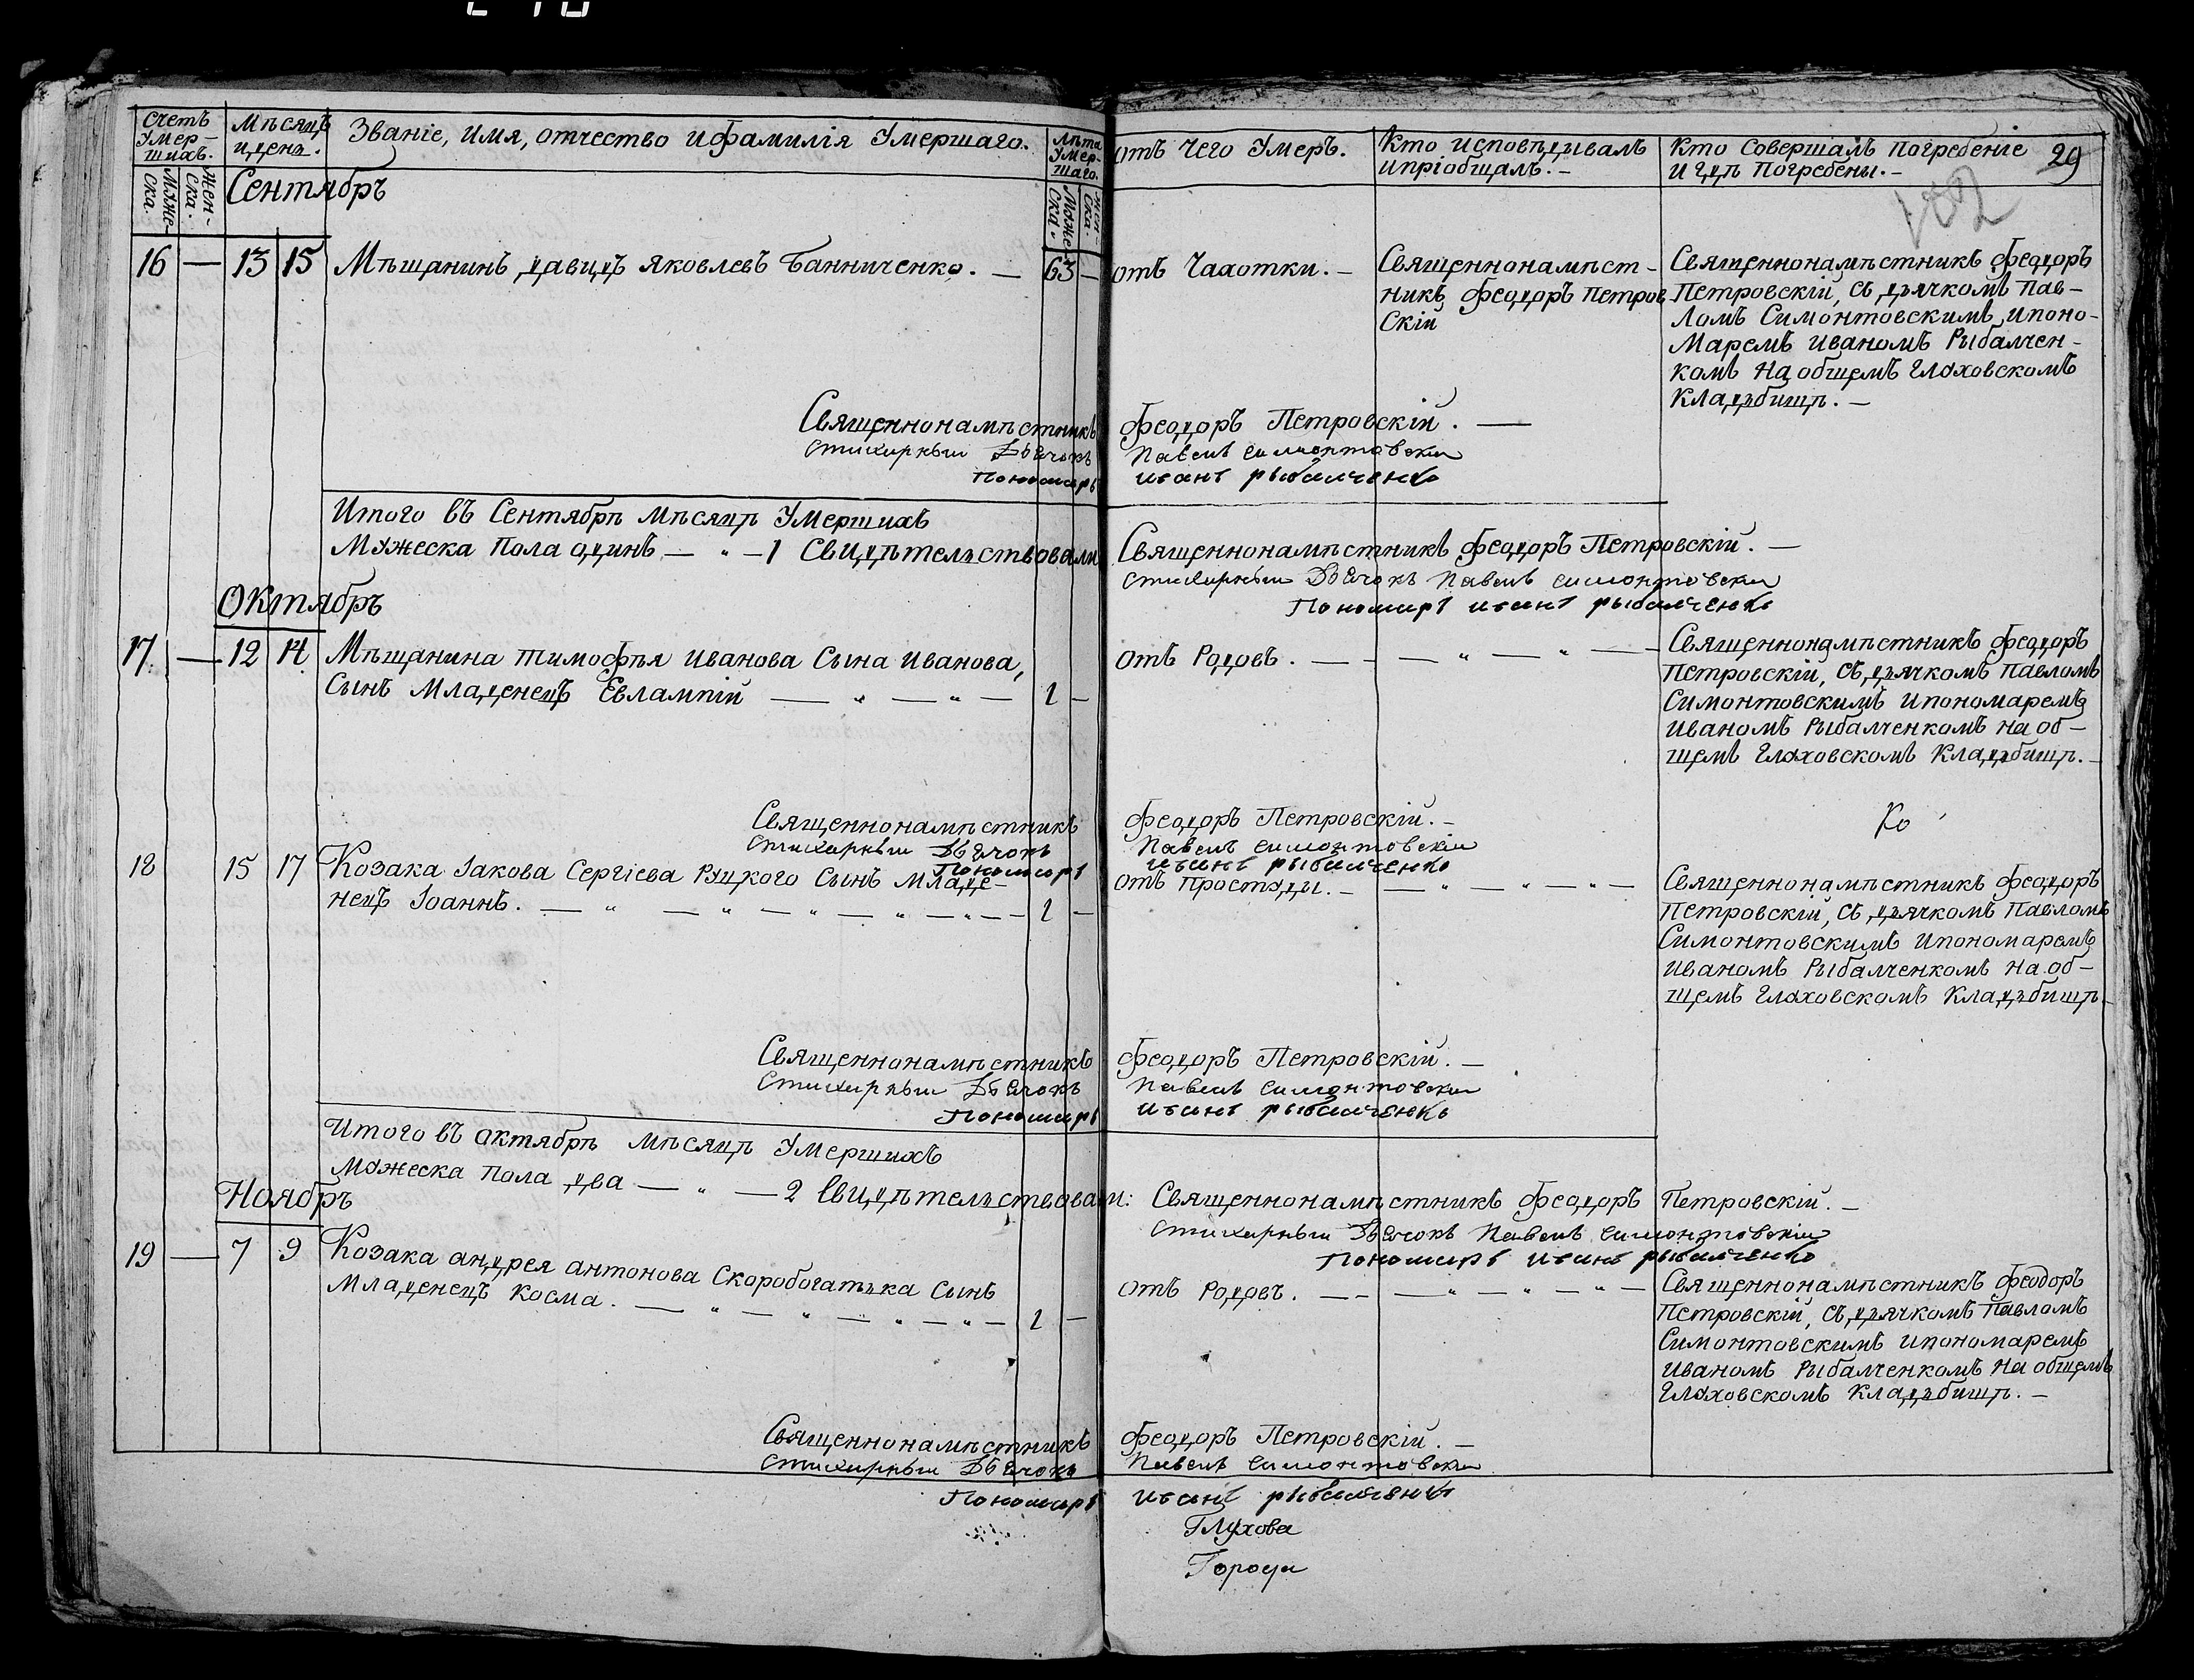 Счетъ Умер-шихъ.
Мѣсяцъ и день.
Званіе, имя, отчество и фамилія Умершаго.
Лѣта Умер-шаго.
отъ чего Умеръ.
Кто исповѣдивалъ и пріобщалъ. —
Кто совершалъ погребеніе и гдѣ погребены. —
29
Муже-ска.
Жен-ска.
Сентябрь
Муже ска.
Жен-ска.
16 — 13 15 Мѣщанинъ давидъ Яковлевъ Банниченко. — 63 —
отъ Чахотки. —
Священнонамѣст-
никъ Феодоръ Петров
скій
Священнонамѣстникъ Феодоръ
Петровскій, съ дьячкомъ Пав-
ломъ Симонтовскимъ, и поно-
маремъ Иваномъ Рыбалчен-
комъ на общемъ Глуховскомъ
кладьбищѣ. —
Священнонамѣстникъ Феодоръ Петровскій. —
Стихарный Дьячокъ Павелъ Симонтовскій
Пономарь Иванъ Рыбалченко
Итого въ Сентябрѣ мѣсяцѣ Умершихъ
Мужеска пола одинъ — „ — 1 Свидѣтельствовали
Священнонамѣстникъ Феодоръ Петровскій. —
Стихарный Дьячокъ Павелъ Симонтовскій
Пономарь Иванъ Рыбалченко
Октябрь
17 — 12 14 Мѣщанина Тимофѣя Иванова Сына Иванова,
Сынъ Младенецъ Евлампій — „ — „ — 1 —
отъ Родовъ. — — — „ — „ —
Священнонамѣстникъ Феодоръ
Петровскій, съ дьячкомъ Павломъ
Симонтовскимъ и пономаремъ
Иваномъ Рыбалченкомъ на об-
щемъ Глуховскомъ Кладьбищѣ. —
Священнонамѣстникъ Феодоръ Петровскій. —
Стихарный Дьячокъ Павелъ Симонтовскій
Пономарь Иванъ Рыбалченко
Ко
18 15 17 Козака Іакова Сергіева Руцкого Сынъ Младе-
нецъ Іоаннъ. — „ — „ — „ — „ — „ — — 1 —
отъ простуды. — — „ — „ — „ —
Священнонамѣстникъ Феодоръ
Петровскій, съ дьячкомъ Павломъ
Симонтовскимъ и пономаремъ
Иваномъ Рыбалченкомъ на об-
щемъ Глуховскомъ Кладьбищѣ.
Священнонамѣстникъ Феодоръ Петровскій. —
Стихарный Дьячокъ Павелъ Симонтовскій
Пономарь Иванъ Рыбалченко
Итого въ октябрѣ мѣсяцѣ Умершихъ
Мужеска пола два — „ — 2 Свидѣтельствовали:
Священнонамѣстникъ Феодоръ Петровскій. —
Стихарный Дьячокъ Павелъ Симонтовскій
Пономарь Иванъ Рыбалченко
Ноябрь
19 — 7 9 Козака андрея антонова Скоробогатька Сынъ
Младенецъ Косма. — „ — „ — „ — „ — 1 —
отъ Родовъ. — — — „ — „ — „ —
Священнонамѣстникъ Феодоръ
Петровскій, съ дьячкомъ Павломъ
Симонтовскимъ и пономаремъ
Иваномъ Рыбалченкомъ на общемъ
Глуховскомъ Кладьбищѣ. —
Священнонамѣстникъ Феодоръ Петровскій. —
Стихарный Дьячокъ Павелъ Симонтовскій
Пономарь Иванъ Рыбалченко
Глухова
Города